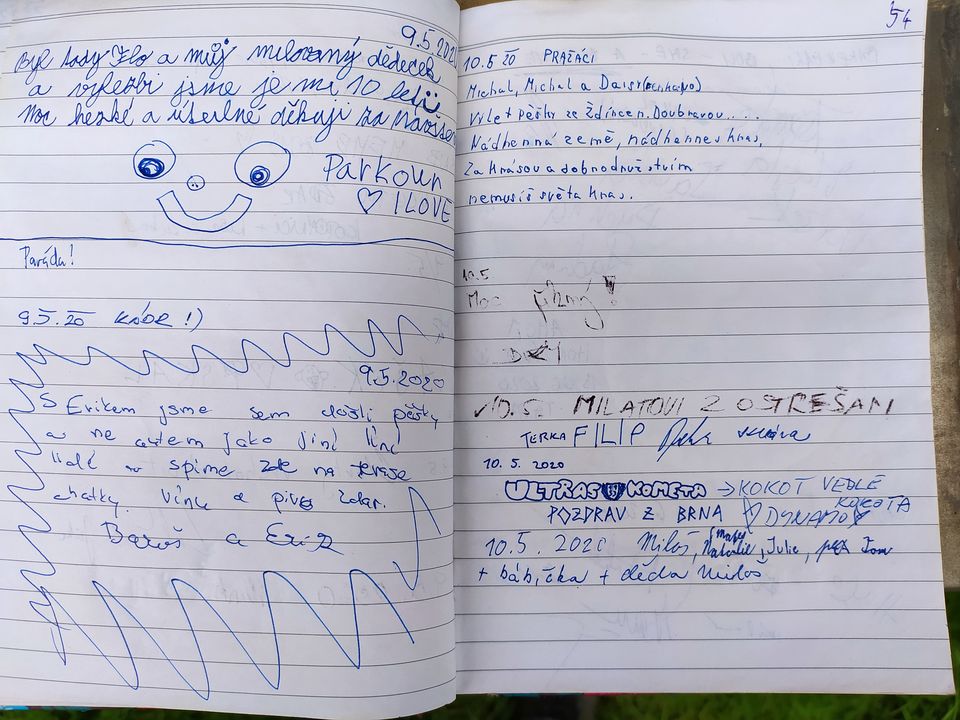 9.5.202
Byl tady Ilo a můj milovaný dědeček
a vylezli jsme je mi 10 letů
Moc hezké a úžasné děkuji za
Parkour
♡ I LOVE
Paráda!
9.5.20 KÁDR !)
9.5.2020
S Erikem jsme sem došli pěšky
a ne autem jako jiní líní
lidé spíme zde na terase
chatky. Vínu a pivu zdar.
Bareš a Erik
54
10.5 20 PRAŽÁCI
Michal, Michal a Daisy
Výlet pěšky ze Ždírce n. Doubravou....
Nádherná země, nádhernej kras,
Za krásou a dobrodružstvím
nemusíš světa kras.
10.5
Moc !
✓10.5. MILATOVI Z OSTŘEŠAN
TERKA FILIP
10. 5. 2020
ULTRAS KOMETA → KOKOT VEDLE KOKOTA
POZDRAV Z BRNA ♡ DYNAMO ♡
10.5.2020 Miloš, Natalie, Matěj, Julie, Tom
+ babička + děda Miloš